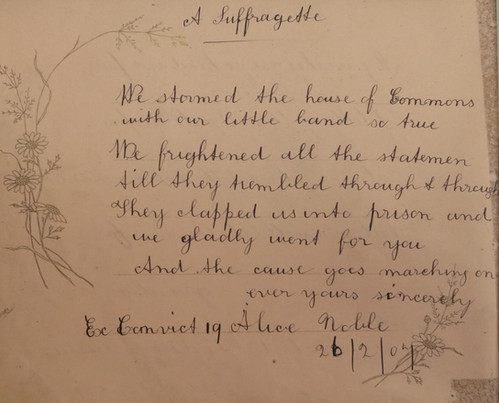 A Suffragette
We stormed the house of Commons
with our little band so true
We frightened all the statemen
till they trembled through & through
They clapped us into prison and
we gladly went for you
And the cause goes marching on
ever yours sincerely
Ex Convict 19 Alice Noble
26/2/07